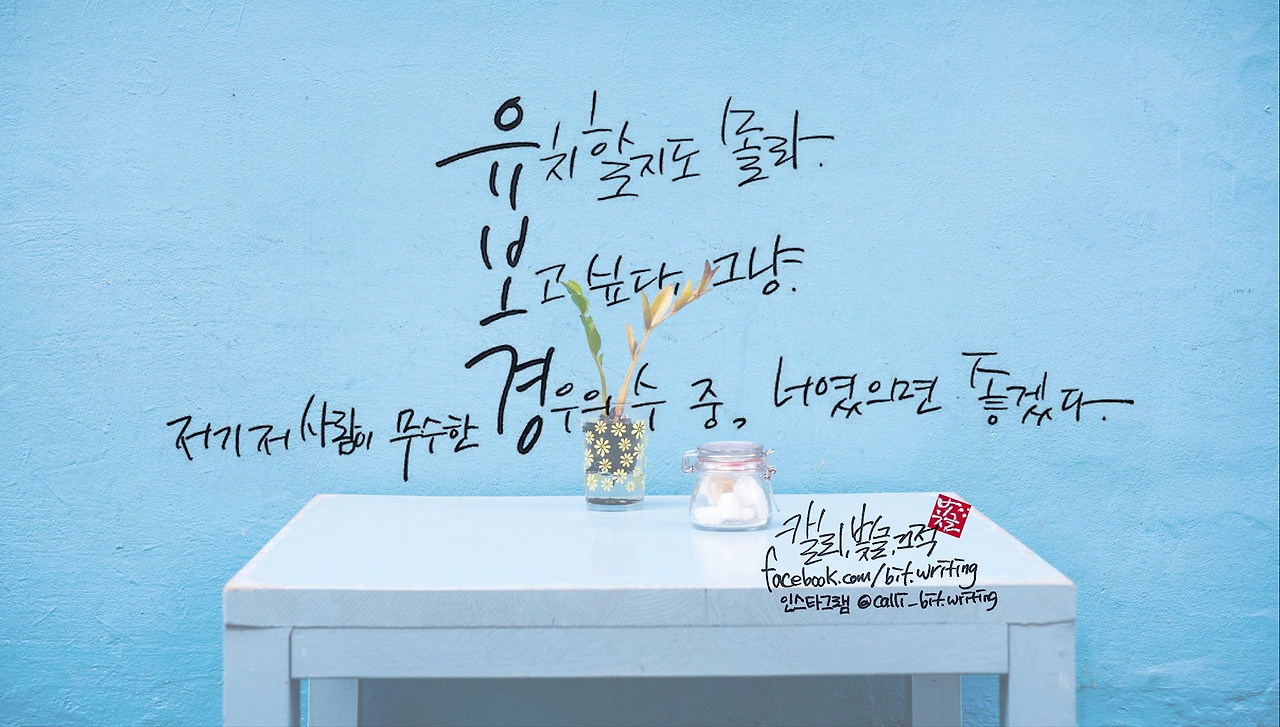 유치할지도 몰라.
보고싶다, 그냥.
저기 저 사람이 무수한 경우의 수 중, 너였으면 좋겠다.
캘리, 빛글, 끄적
빛글
facebook.com/bit.writing
인스타그램 @calli_bit.writing